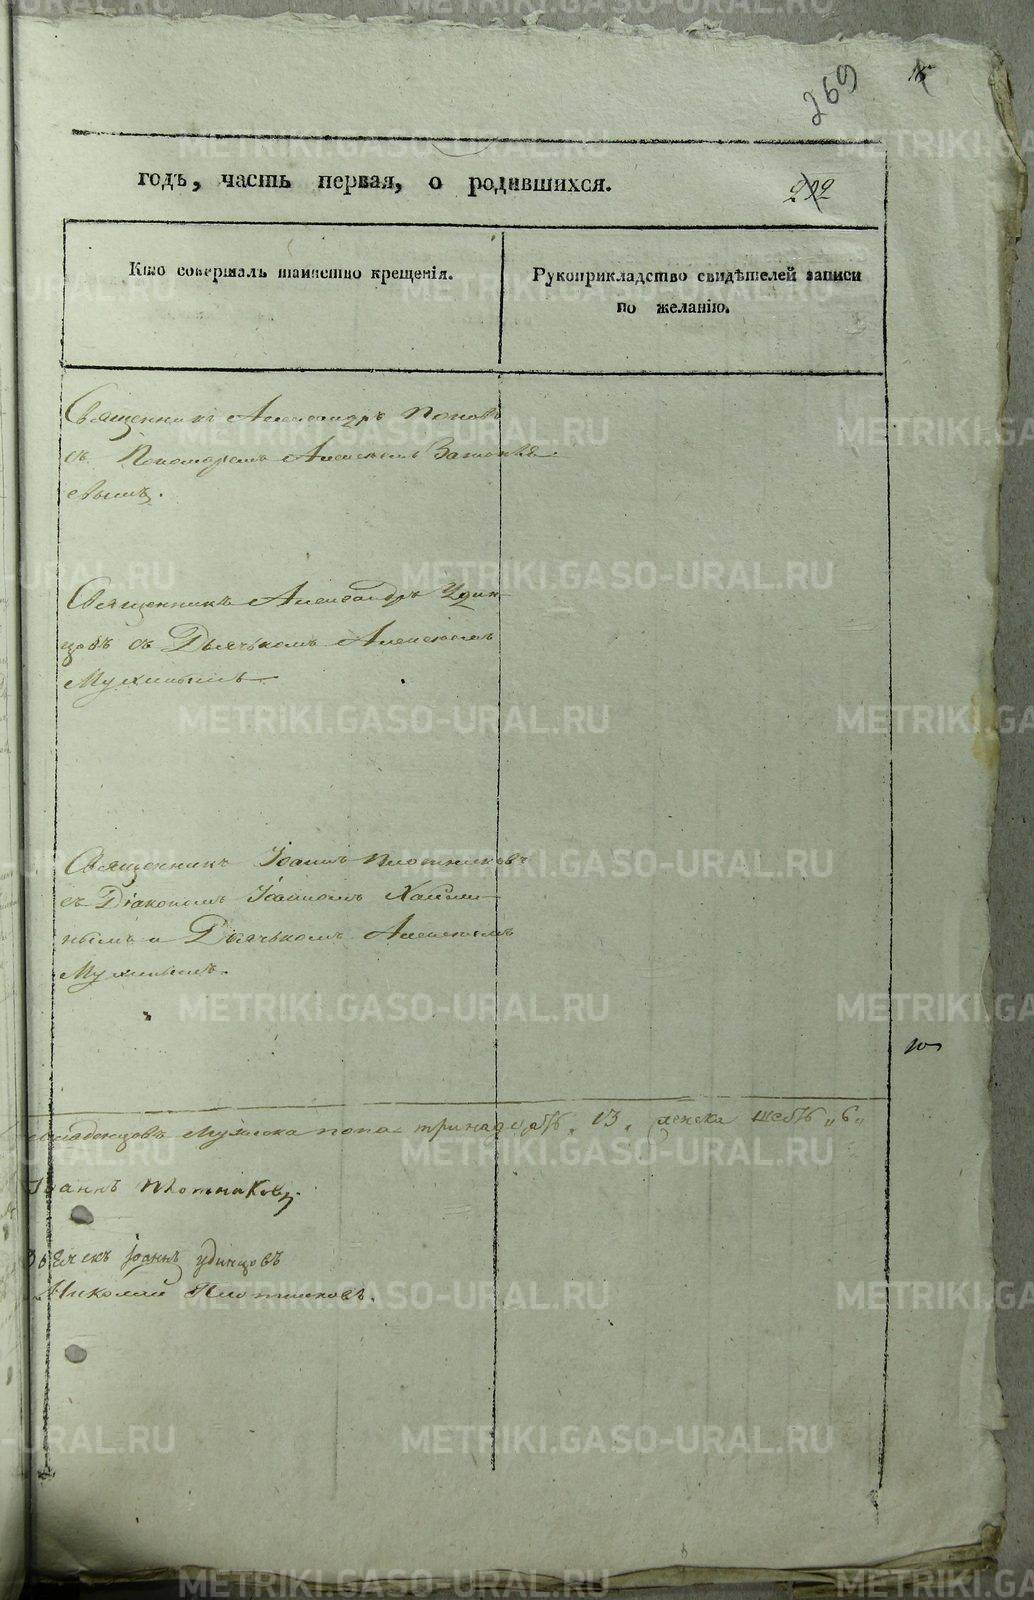 269
годъ, часть первая, о родившихся.
212
Кто совершалъ таинство крещенія.
Рукоприкладство свидѣтелей записи
по желанію.
Священникъ Александръ Поповъ
съ Пономаремъ Алексѣемъ
Священникъ Александръ Удин-
цовъ съ Дьячькомъ Алексѣемъ
Мухинымъ
Священникъ Іоаннъ Плотниковъ
съ Діакономъ Іоанномъ
нымъ и Дьячькомъ Алексѣемъ
Мухинымъ.
10
младенцовъ Мужска пола тринадцать „13„ женска шесть „6„
Іоаннъ Плотниковъ.
Іоаннъ Удинцовъ
Николай Плотниковъ.
METRIKI.GASO-URAL.RU